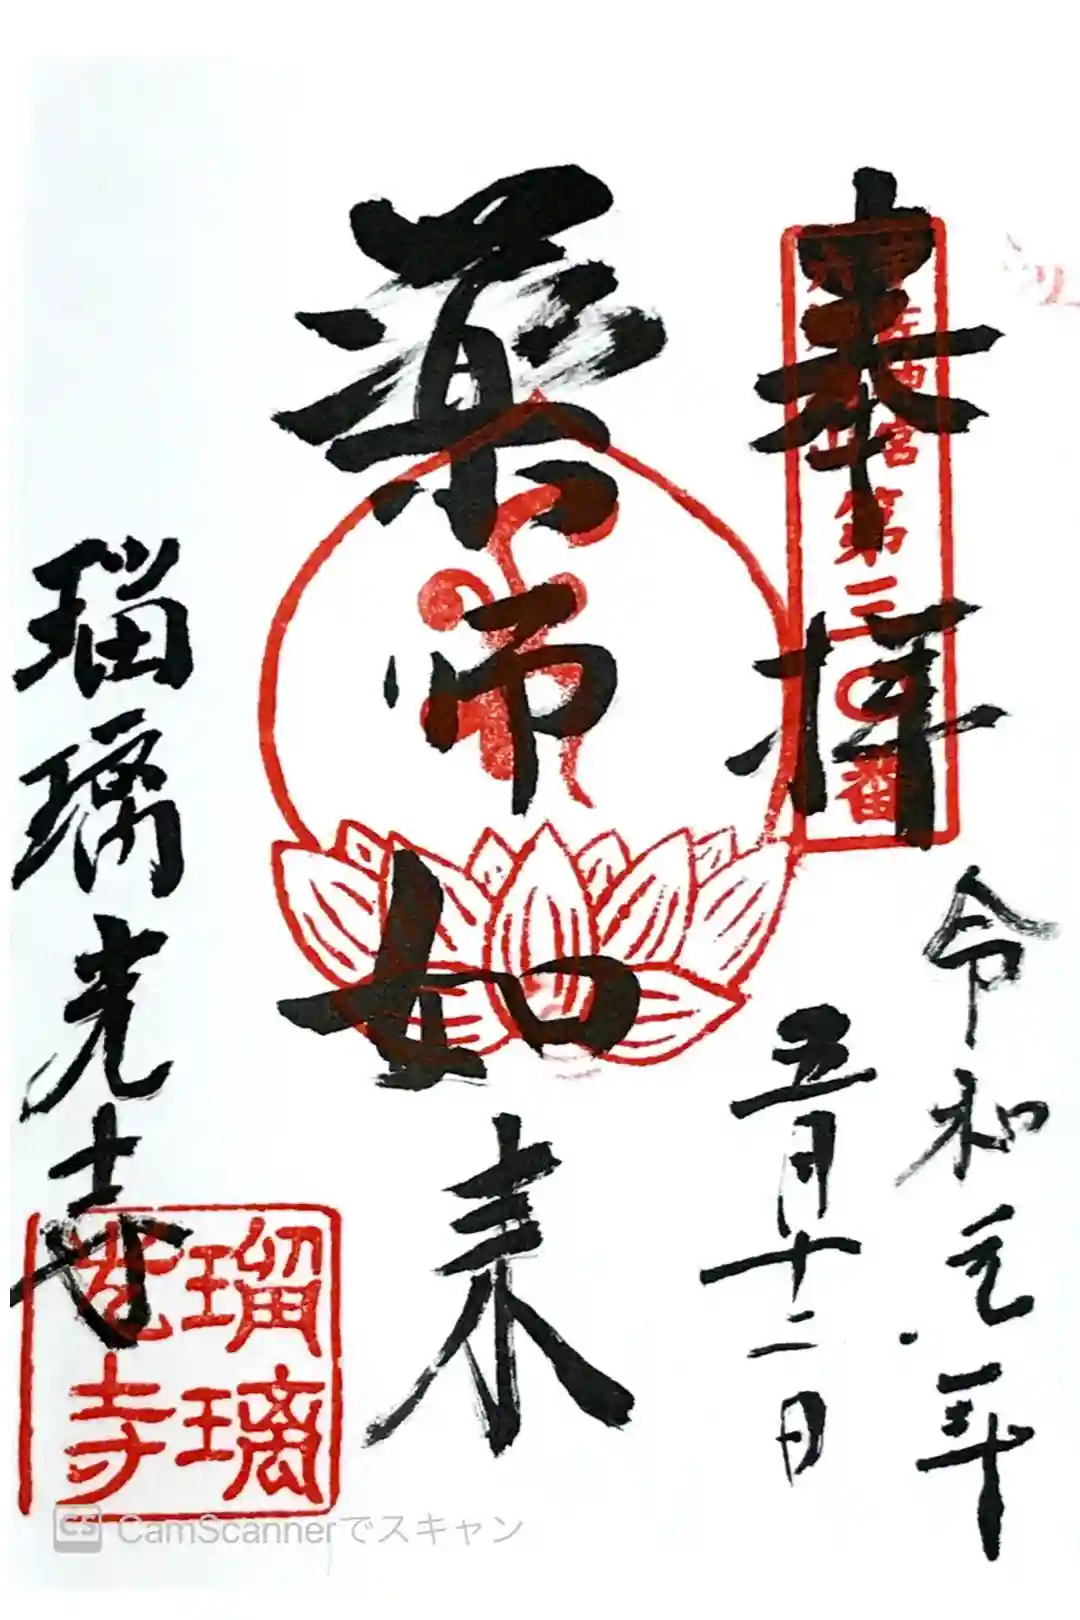 奉拝
第三〇番
令和元年
五月十二日
薬师如来
瑠璃光寺
瑠璃
光寺
CamScannerでスキャン